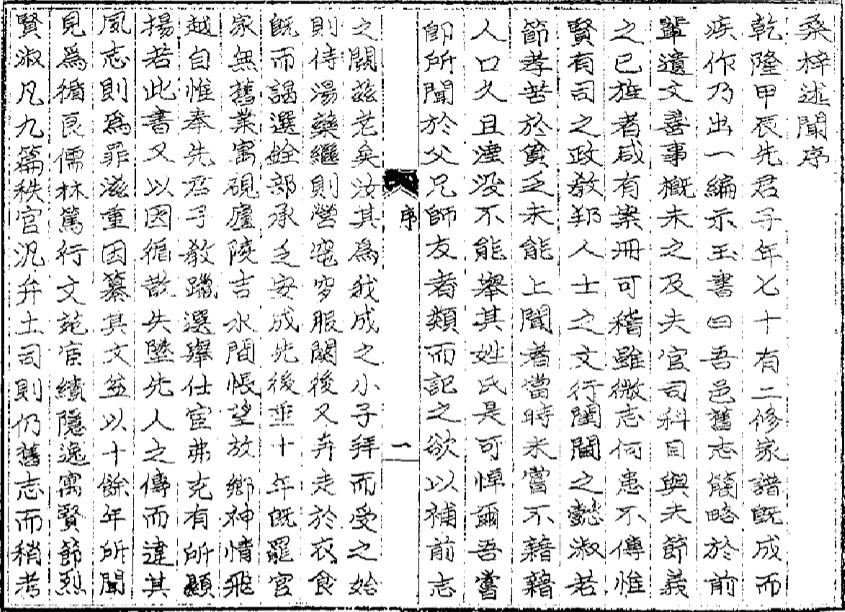 桑梓述聞序
乾隆甲辰先君子年七十有二修家譜既成而
疾作乃出一編示玉書曰吾邑舊志簡略於前
輩遺文善事概未之及夫官司科目與夫節義
之已旌者咸有案冊可稽雖微志何患不傳惟
賢有司之政教郡人士之文行閨閫之懿淑若
節孝苦於貧乏未能上聞者當時未嘗不藉藉
人口久且湮沒不能舉其姓氏是可悼爾吾嘗
卽所聞於父兄師友者類而記之欲以補前志
序
一
之闕茲老矣汝其為我成之小子拜而受之始
則侍湯藥繼則營窀穸服闋後又奔走於衣食
既而謁選銓部承乏安成先後垂十年既罷官
家無舊業寓硯廬陵吉水間悵望故鄉神情飛
越自惟奉先君子教躐選舉仕宦弗克有所顯
揚若此書又以因循散失墜先人之傳而違其
夙志則為罪滋重因纂其文益以十餘年所聞
見為循良儒林篤行文苑宦績隱逸寓賢節烈
賢淑凡九篇秩官汛弁土司則仍舊志而稍考